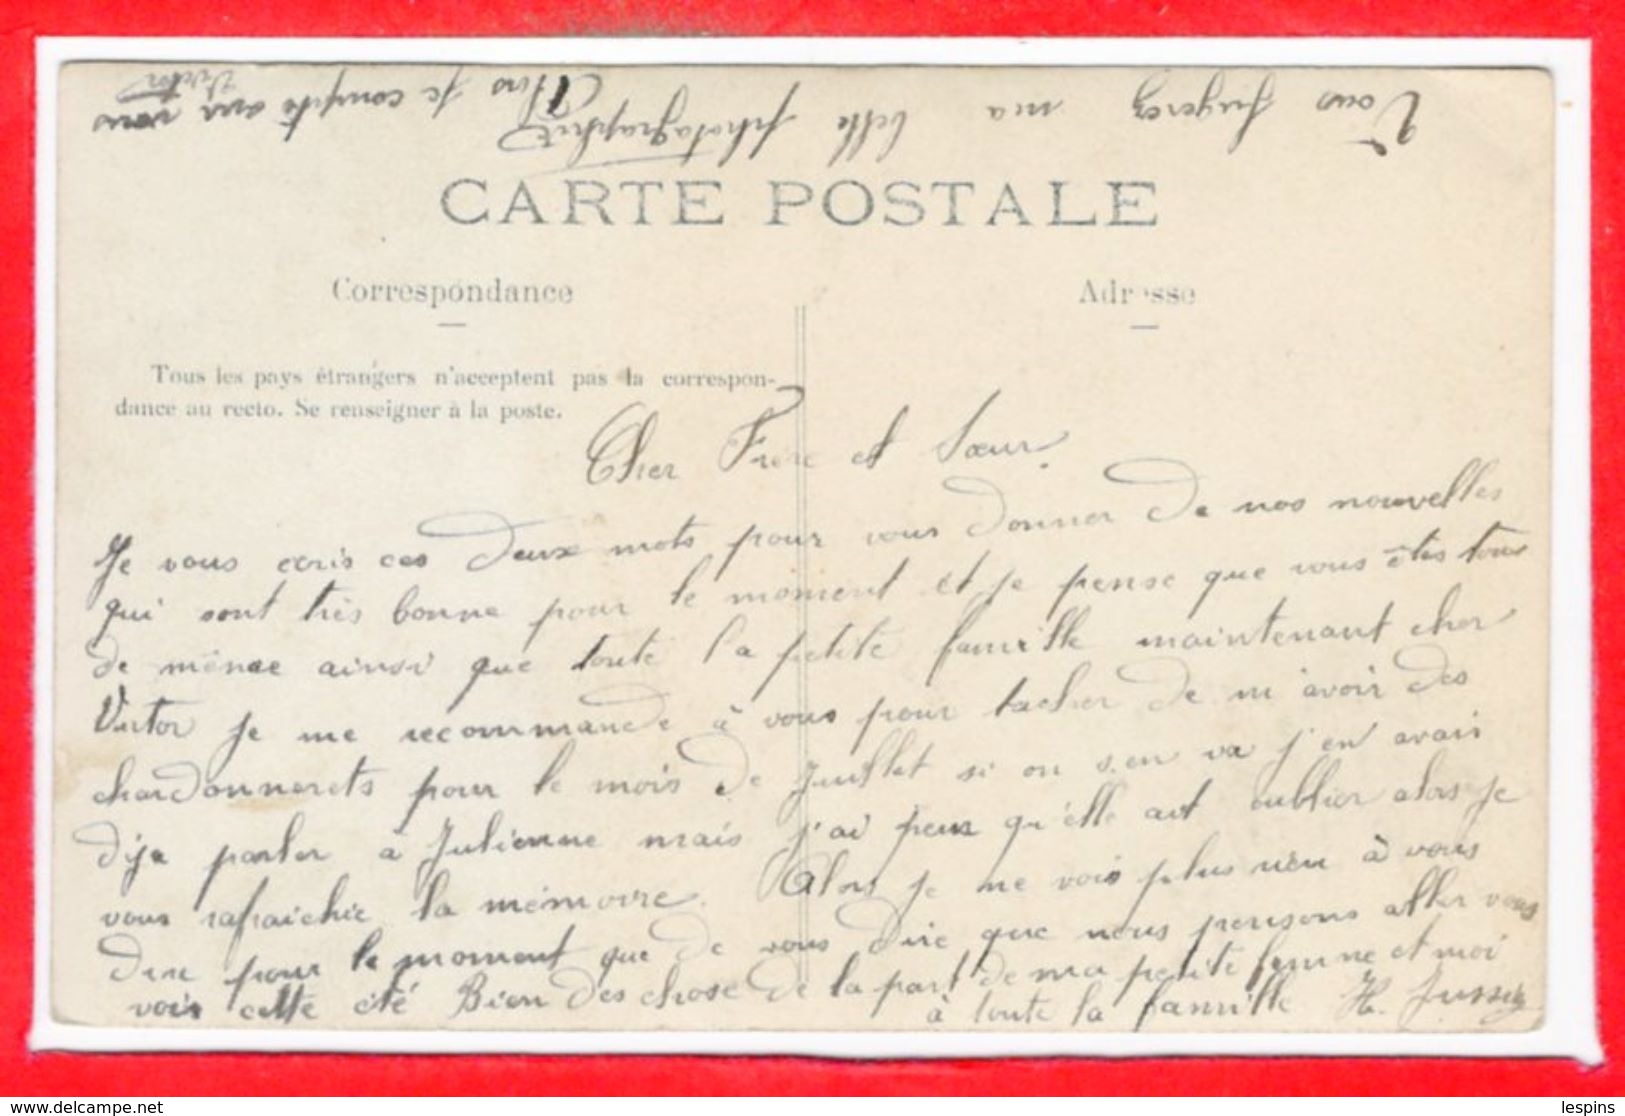 Vous jugerez ma belle photographie
Alors je compte sur vous
Victor
CARTE POSTALE
Correspondance
Adresse
Tous les pays étrangers n'acceptent pas la correspon-
dance au recto. Se renseigner à la poste.
Cher Frère et Sœur.
Je vous ecris ces deux mots pour vous donner de nos nouvelles
qui sont très bonne pour le moment et je pense que vous êtes tous
de même ainsi que toute la petite famille maintenant cher
Victor je me recommande à vous pour tacher de m'avoir des
chardonnerets pour le mois de Juillet si on s.en va j'en avais
dija parler a Julienne mais j'ai peur qu'elle ait oublier alors je
vous rafraichie la mémoire. Alors je ne vois plus rien à vous
dire pour le moment que de vous dire que nous pensons aller vous
voir cette été Bien des chose de la part de ma petite femme et moi
à toute la famille H.
delcampe.net
lespins